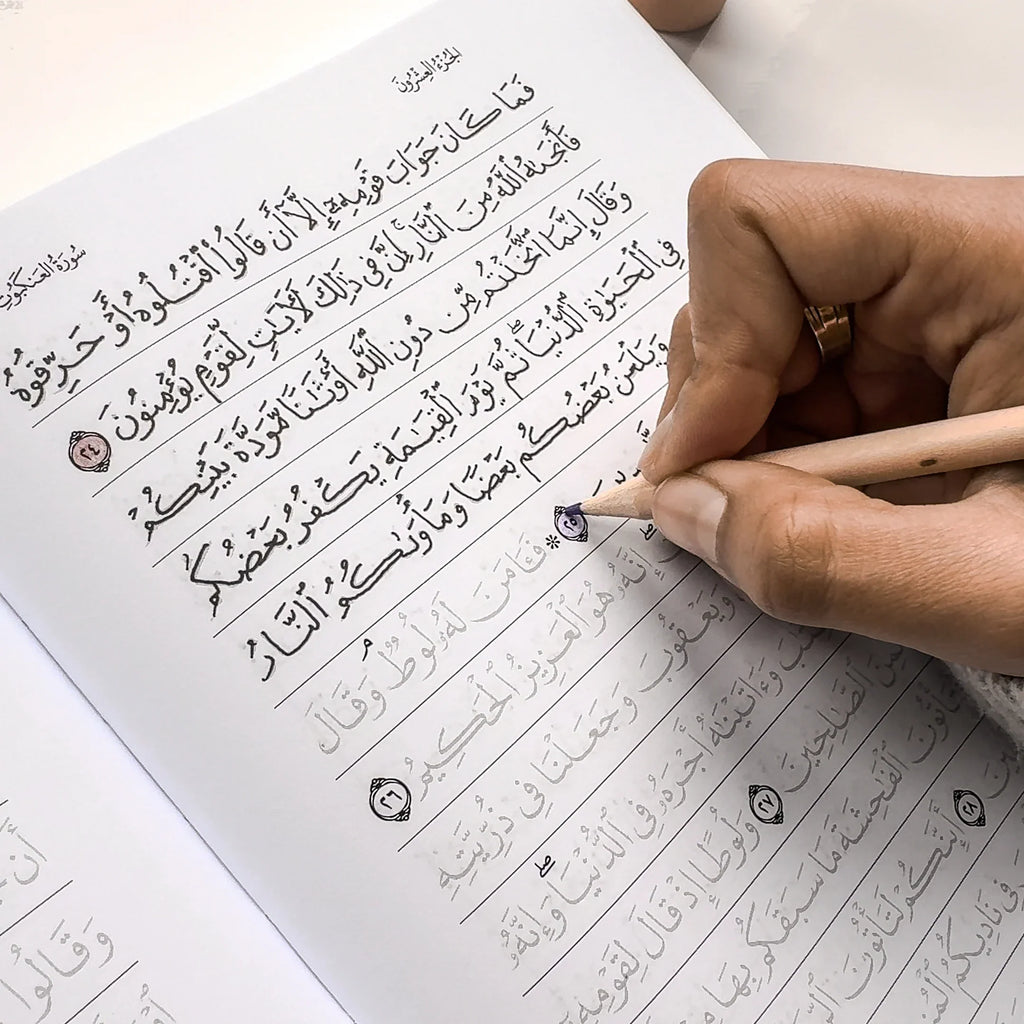 الجزء العشرون
سورة العنكبوت
فَمَا كَانَ جَوَابَ قَوْمِهِۦٓ إِلَّآ أَن قَالُوا۟ ٱقْتُلُوهُ أَوْ حَرِّقُوهُ
فَأَنجَىٰهُ ٱللَّهُ مِنَ ٱلنَّارِ ۚ إِنَّ فِى ذَٰلِكَ لَـَٔايَـٰتٍ لِّقَوْمٍ يُؤْمِنُونَ ٢٤
وَقَالَ إِنَّمَا ٱتَّخَذْتُم مِّن دُونِ ٱللَّهِ أَوْثَـٰنًا مَّوَدَّةَ بَيْنِكُمْ
فِى ٱلْحَيَوٰةِ ٱلدُّنْيَا ۖ ثُمَّ يَوْمَ ٱلْقِيَـٰمَةِ يَكْفُرُ بَعْضُكُم
وَيَلْعَنُ بَعْضُكُم بَعْضًا وَمَأْوَىٰكُمُ ٱلنَّارُ
٢٥ * فَـَٔامَنَ لَهُۥ لُوطٌ ۘ وَقَالَ
إِنَّهُۥ هُوَ ٱلْعَزِيزُ ٱلْحَكِيمُ ٢٦
وَيَعْقُوبَ وَجَعَلْنَا فِى ذُرِّيَّتِهِ
وَءَاتَيْنَـٰهُ أَجْرَهُۥ فِى ٱلدُّنْيَا ۖ وَإِنَّهُۥ
ٱلصَّـٰلِحِينَ ٢٧ وَلُوطًا إِذْ قَالَ لِقَوْمِهِۦٓ
ٱلْفَـٰحِشَةَ مَا سَبَقَكُم بِهَا
٢٨ أَئِنَّكُمْ لَتَأْتُونَ
فِى نَادِيكُمُ
وَقَالُوا۟